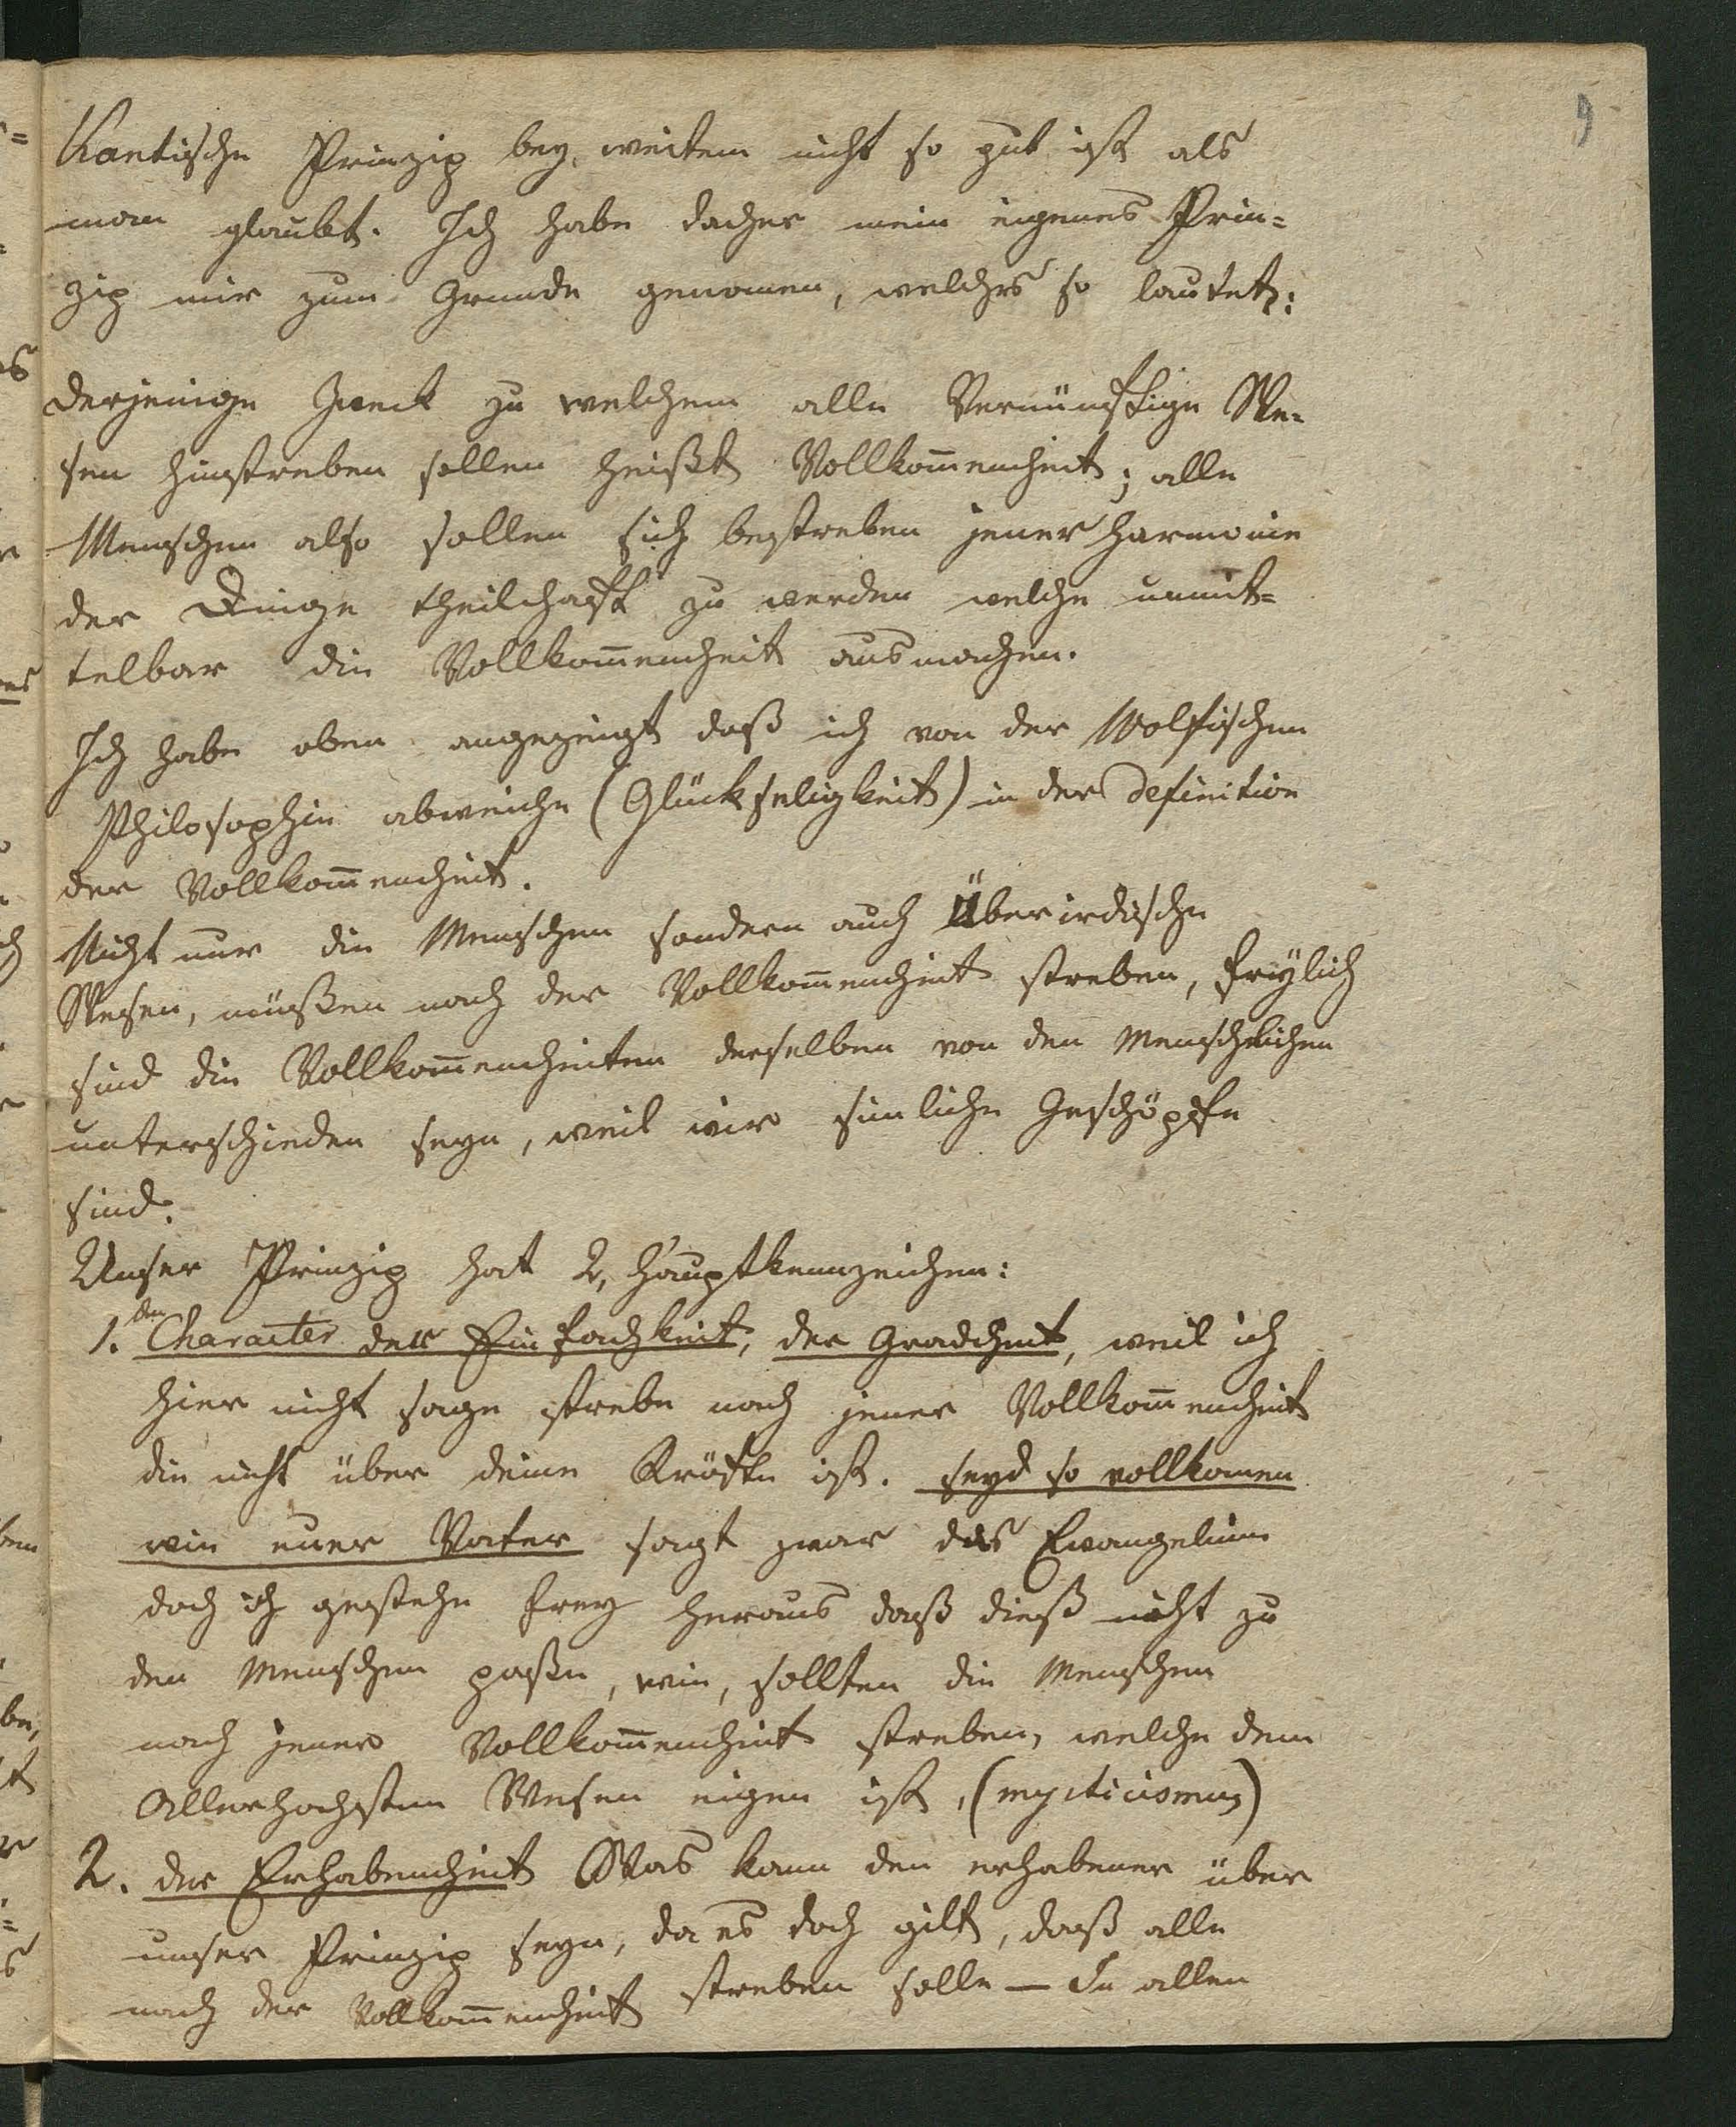 9
Kantische Prinzip bey weitem nicht so gut ist als
man glaubt. Ich habe daher mein eigenes Prin=
zip mir zum Grunde genomen, welches so lautet:
Derjenige Zweck zu welchem alle Vernünftige We=
sen hinstreben sollen heißt Vollkom̅enheit; alle
Menschen also sollen sich bestreben jener Harmonie
der Dinge theilhaft zu werden welche unmit=
telbar die Vollkom̅enheit ausmachen.
Ich habe oben angezeigt daß ich von der Wolfischen
Philosophie abweiche (Glückseligkeit) in der Definition
der Vollkom̅enheit.
Nicht nur die Menschen sondern auch Überirdische
Wesen, müßen nach der Vollkom̅enheit streben, freylich
sind die Vollkom̅enheiten derselben von den Menschlichen
unterschieden seyn, weil wir sinliche Geschöpfe
sind.
Unser Prinzip hat 2, Hauptkennzeichen:
1. den Character der Einfachkeit, der Gradheit, weil ich
hier nicht sage strebe nach jener Vollkom̅enheit
die nicht über deine Kräfte ist. seyd so vollkomen
wie euer Vater sagt zwar das Evangelium
doch ich gestehe frey heraus daß dieß nicht zu
den Menschen paße, wie, sollten die Menschen
nach jener Vollkom̅enheit streben, welche dem
Allerhochsten Wesen eigen ist, (mysticismus)
2. der Erhabenheit Was kann den erhabener über
unser Prinzip seyn, da es doch gilt, daß alle
nach der Vollkom̅enheit streben solle — In allen